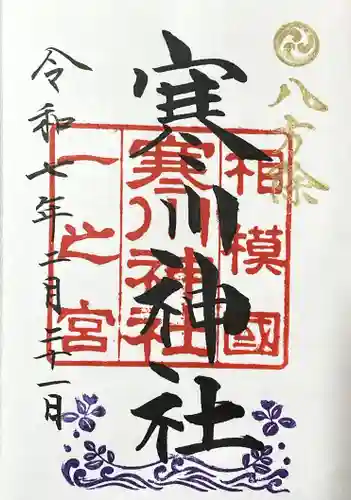 八方除
相模國
寒川神社
一之宮
寒川神社
令和七年二月二十一日